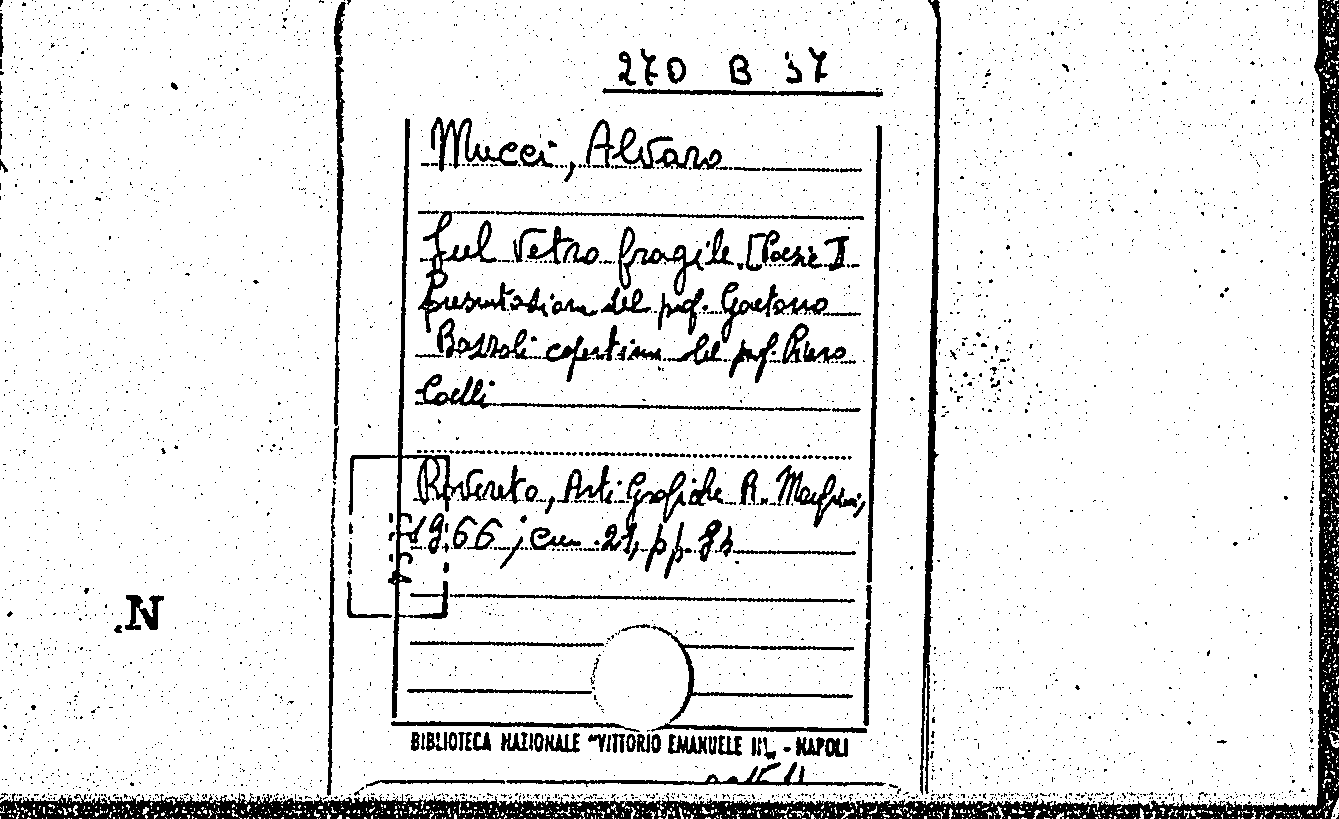 270 B 37
Mucci, Alvaro
Sul vetro fragile. [Poesie]
Presentazione del prof. Gaetano
Bazzoli copertina del prof. Piero
Coelli
Rovereto, Arti Grafiche R. Manfrini,
1966; cm. 21, pp.
N
BIBLIOTECA NAZIONALE "VITTORIO EMANUELE III„ - NAPOLI